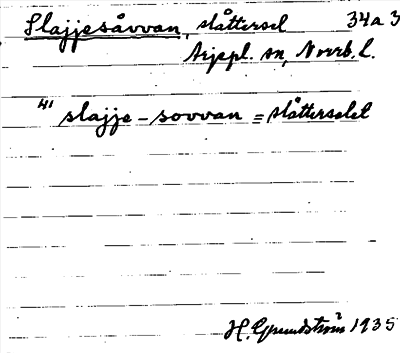 Slajjesåvvan, slåttersel 34a3
Arjepl. sn, Norrb. l.
41 slajje-sovvan = slåtterselet
H. Grundström 1935